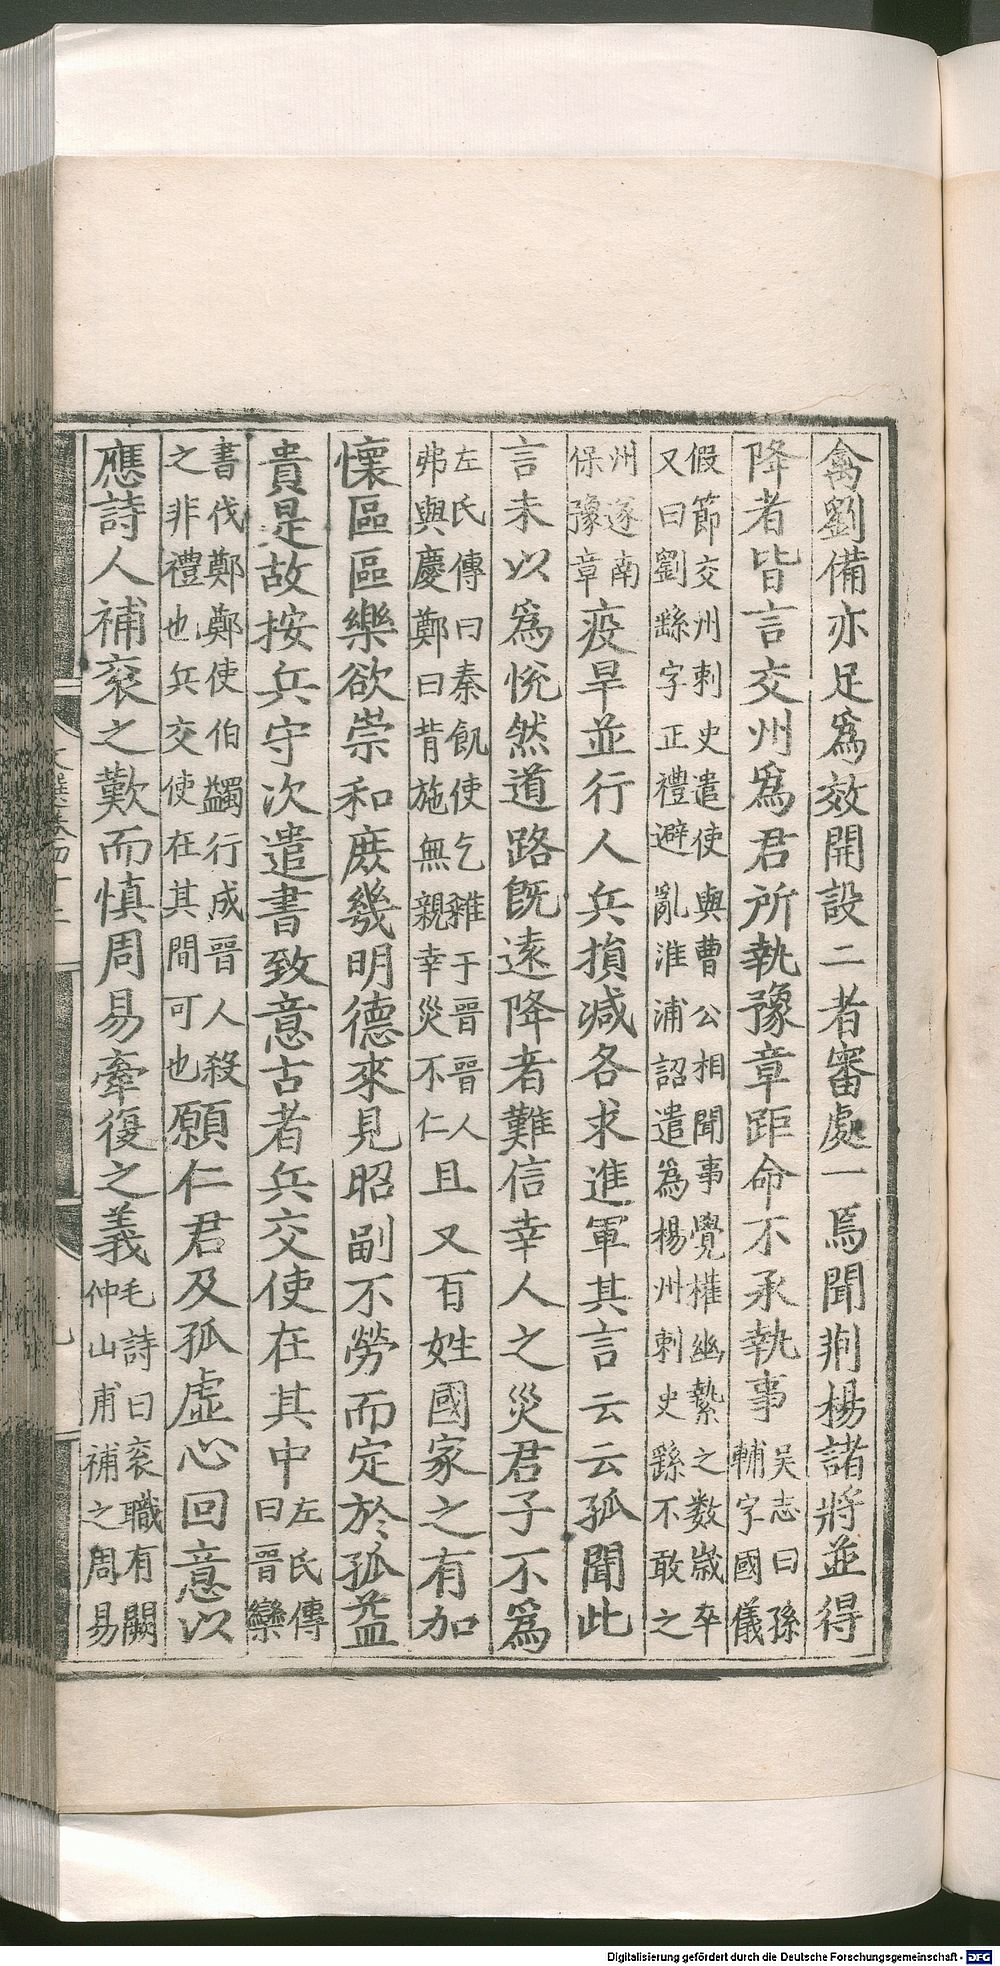 禽劉備亦足爲效開設二者審處一焉聞荆楊諸將並得
降者皆言交州爲君所執豫章距命不承執事吴志曰孫
輔字國儀
假節交州刺史遣使與曹公相聞事覺權幽縶之数歳卒
又曰劉繇字正禮避亂淮浦詔遣爲楊州刺史繇不敢之
州遂南
保豫章疫旱並行人兵損减各求進軍其言云云孤聞此
言未以爲恱然道路既遠降者難信幸人之災君子不爲
左氏傳曰秦飢使乞糴于晉晉人
弗與慶鄭曰背施無親幸災不仁且又百姓國家之有加
懷區區樂欲崇和庶幾明德來見昭副不勞而定於孤益
貴是故按兵守次遣書致意古者兵交使在其中左氏傳
曰晉欒
書伐鄭鄭使伯蠲行成晉人殺
之非禮也兵交使在其間可也願仁君及孤虚心回意以
應詩人補衮之歎而慎周易牽復之義毛詩曰衮職有闕
仲山甫補之周易
Digitalisierung gefördert durch die Deutsche Forschungsgemeinschaft - DFG